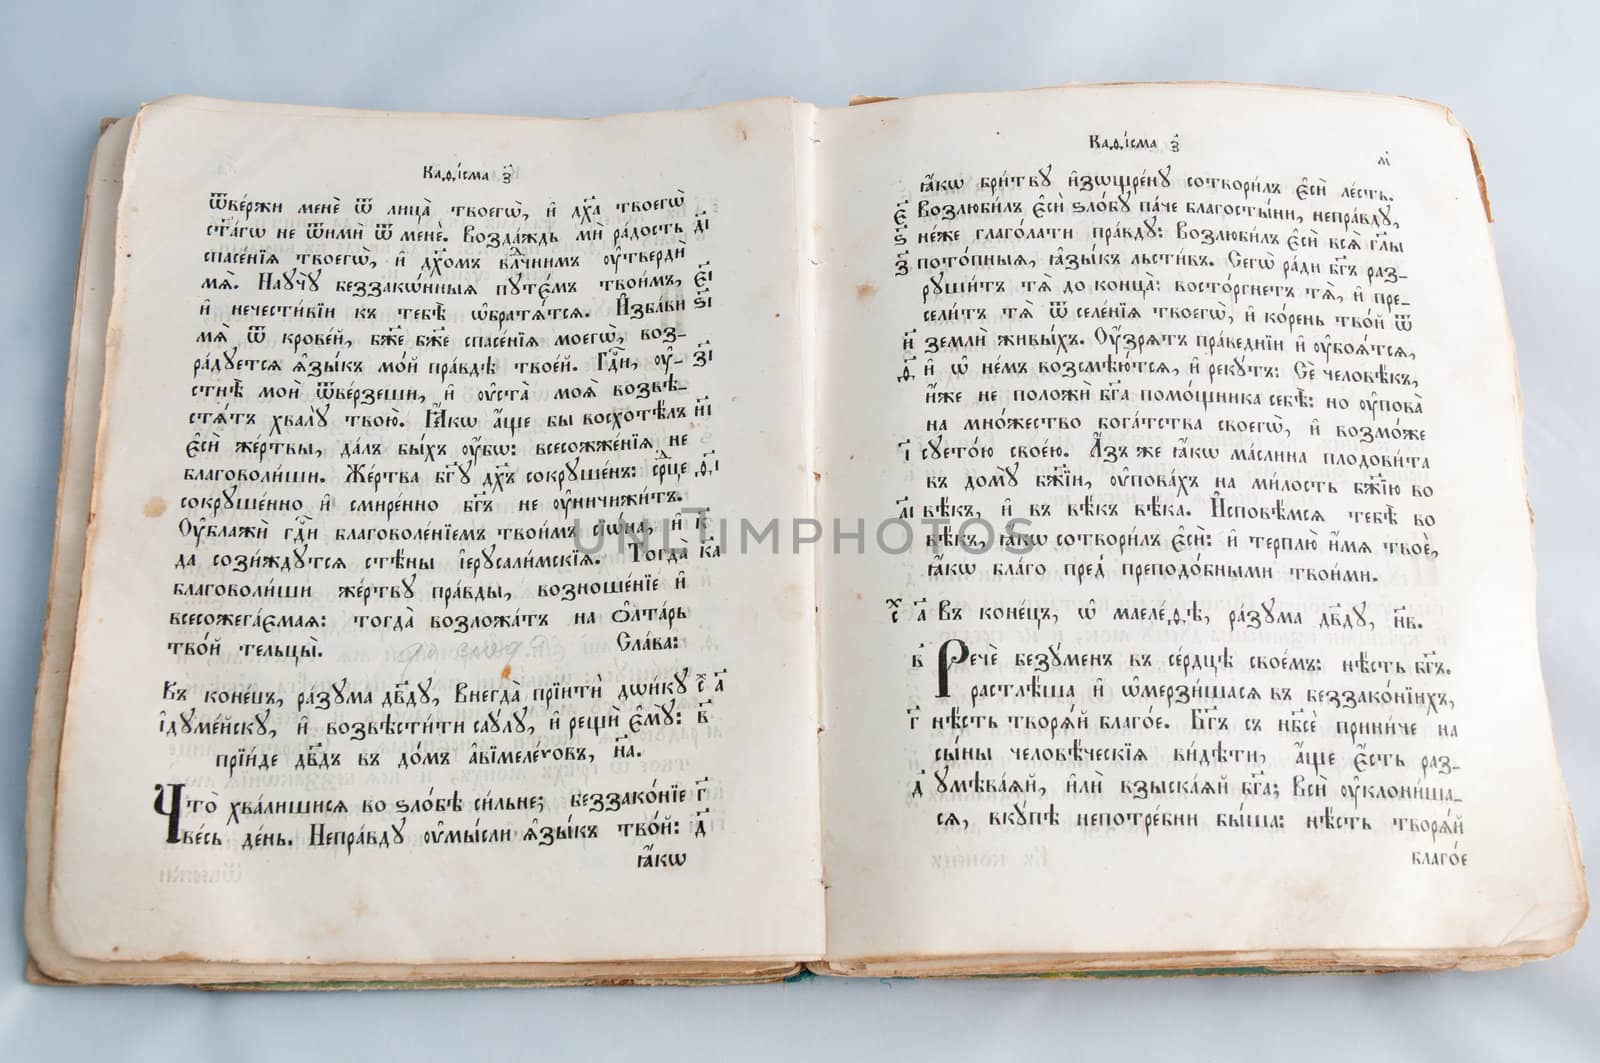 Каѳі́сма з҃
ѿве́ржи менѐ ѿ лица̀ твоегѡ̀, и҆ дх҃а твоегѡ̀
ст҃а́гѡ не ѿимѝ ѿ менѐ. Возда́ждь мѝ ра́дость д҃і
спасе́нїѧ твоегѡ̀, и҆ дх҃омъ влⷣчнимъ ѹ҆твердѝ
мѧ̀. Наѹчѹ̀ беззако́нныѧ пѹте́мъ твои́мъ, є҃і
и҆ нечести́вїи къ тебѣ̀ ѡ҆братѧ́тсѧ. И҆зба́ви ѕ҃і
мѧ̀ ѿ крове́й, бж҃е бж҃е спасе́нїѧ моегѡ̀, воз-
ра́дѹетсѧ ѧ҆зы́къ мо́й пра́вдѣ твое́й. Гдⷭ҇и, ѹ҆- з҃і
стнѣ̀ моѝ ѿве́рзеши, и҆ ѹста̀ моѧ̀ возвѣ-
стѧ́тъ хвалѹ̀ твою̀. Ꙗ҆́кѡ а҆́ще бы восхотѣ́лъ и҃і
є҆сѝ же́ртвы, да́лъ бы́хъ ѹ҆́бѡ: всесожже́нїѧ не
благоволи́ши. Же́ртва бг҃ѹ дх҃ъ сокрѹше́нъ: срⷣце ѳ҃і
сокрѹше́нно и҆ смире́нно бг҃ъ не ѹ҆ничижи́тъ.
Оу҆блажѝ гдⷭ҇и благоволе́нїемъ твои́мъ сїѡ́на, и҆ к҃
да сози́ждѹтсѧ стѣ́ны і҆ерѹсали́мскїѧ. Тогда̀ к҃а
благоволи́ши же́ртвѹ пра́вды, возноше́нїе и҆
всесожега́ємаѧ: тогда̀ возложа́тъ на ѻ҆лта́рь
тво́й тельцы̀. Сла́ва:
Въ коне́цъ, ра́зѹма дв҃дѹ, Внегда̀ прїитѝ дѡи́кѹ а҃
і҆дѹме́йскѹ, и҆ возвѣсти́ти саѹлѹ, и҆ рещѝ є҆мѹ̀: в҃
прїи́де дв҃дъ въ до́мъ а҆вїмеле́ховъ, н҃а.
Что̀ хва́лишисѧ во ѕло́бѣ си́льне; беззако́нїе г҃
ве́сь де́нь. Непра́вдѹ ѹ҆мы́сли ѧ҆зы́къ тво́й: д҃
ꙗ҆́кѡ
Каѳі́сма з҃
м҃
ꙗ҆́кѡ бри́твѹ и҆зѡщре́нѹ сотвори́лъ є҆сѝ ле́сть.
є҃ Возлюби́лъ є҆сѝ ѕло́бѹ па́че благосты́ни, непра́вдѹ,
ѕ҃ не́же глаго́лати пра́вдѹ: Возлюби́лъ є҆сѝ всѧ̀ гл҃ы
з҃ пото́пныѧ, ꙗ҆зы́къ льсти́въ. Сегѡ̀ ра́ди бг҃ъ раз-
рѹши́тъ тѧ̀ до конца̀: восто́ргнетъ тѧ̀, и҆ пре-
сели́тъ тѧ̀ ѿ селе́нїѧ твоегѡ̀, и҆ ко́рень тво́й ѿ
и҃ землѝ живы́хъ. Оу҆́зрѧтъ пра́веднїи и҆ ѹ҆боѧ́тсѧ,
ѳ҃ и҆ ѡ҆ не́мъ возсмѣю́тсѧ, и҆ рекѹ́тъ: Сѐ человѣ́къ,
и҆́же не положѝ бг҃а помо́щника себѣ̀: но ѹ҆пова̀
на мно́жество бога́тства своегѡ̀, и҆ возмо́же
і҃ сѹето́ю свое́ю. А҆́зъ же ꙗ҆́кѡ ма́слина плодови́та
въ домѹ̀ бж҃їи, ѹ҆пова́хъ на ми́лость бж҃їю во
а҃і вѣ́къ, и҆ въ вѣ́къ вѣ́ка. И҆сповѣ́мсѧ тебѣ̀ во
вѣ́къ, ꙗ҆́кѡ сотвори́лъ є҆сѝ: и҆ терплю̀ и҆́мѧ твоѐ,
ꙗ҆́кѡ бла́го пред̾ преподо́бными твои́ми.
а҃ Въ коне́цъ, ѡ҆ маеле́ѳѣ, ра́зѹма дв҃дѹ, н҃в.
в҃ Речѐ безѹ́менъ въ се́рдцѣ свое́мъ: нѣ́сть бг҃ъ.
растлѣ́ша и҆ ѡ҆мерзи́шасѧ въ беззако́нїихъ,
г҃ нѣ́сть творѧ́й благо́е. Бг҃ъ съ нб҃сѐ прини́че на
сы́ны человѣ́ческїѧ ви́дѣти, а҆́ще є҆́сть раз-
д҃ ѹмѣва́ѧй, и҆лѝ взыска́ѧй бг҃а; Всѝ ѹ҆клони́ша-
сѧ, вкѹ́пѣ непотре́бни бы́ша: нѣ́сть творѧ́й
благо́е
UNLIMPHOTOS